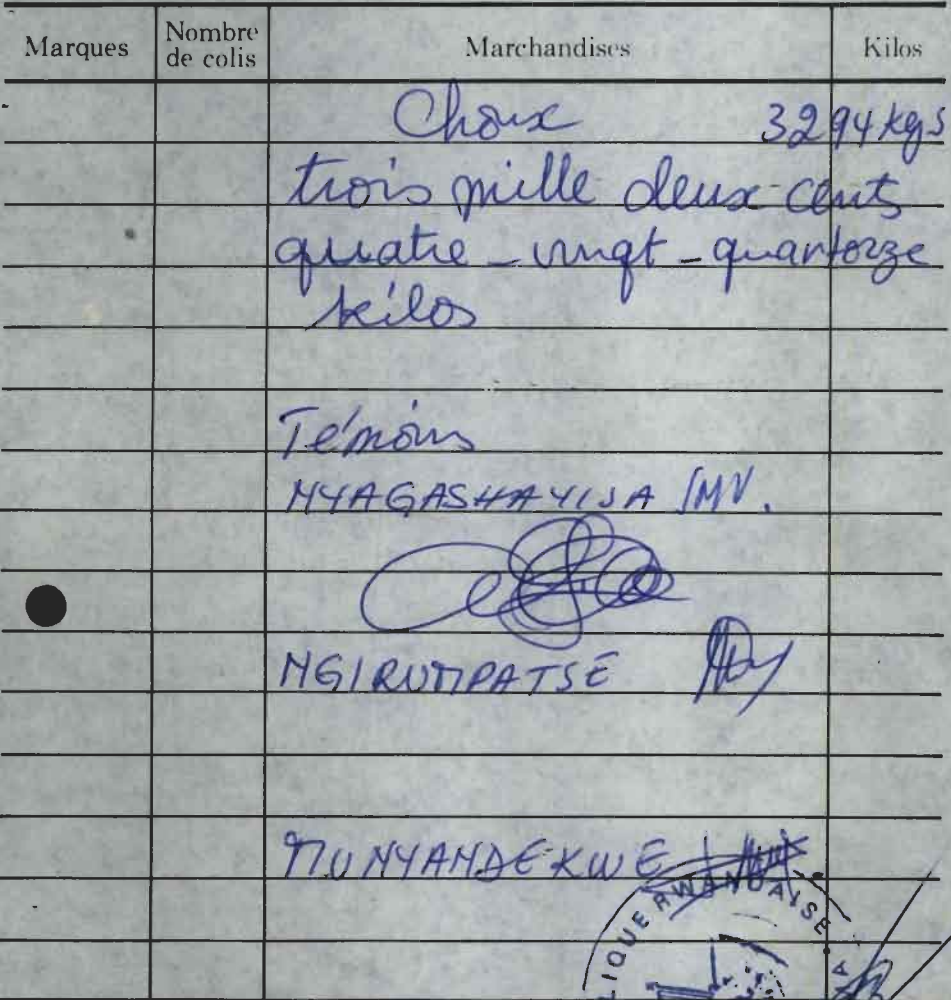 Marques Nombre de colis Marchandises Kilos
Choux 3294 kgs
trois mille deux cents
quatre-vingt-quartorze
kilos
Témoins
NYAGASHAYIJA IMV.
NGIRUMPATSE
MUNYANDEKWE
LIQUE RWANDAISE